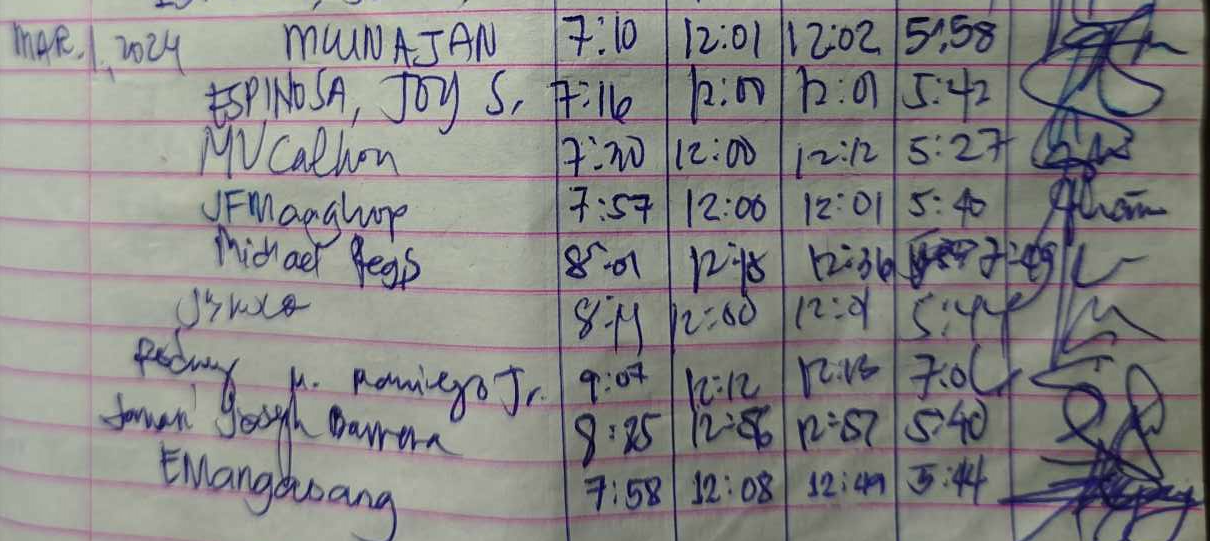 MAR. 1, 2024 MUNAJAN 7:10 12:01 12:02 5:58
ESPINOSA, JOY S. 7:16 12:00 12:01 5:42
MV Calhon 7:20 12:00 12:12 5:27
JFMaaghop 7:57 12:00 12:01 5:40
Michael 8:01 12:18 12:36
8:11 12:00 12:01 5:44
M. Jr. 9:07 12:12 12:13 7:06
Joseph Barrera 8:25 12:56 12:57 5:40
EMangawang 7:58 12:08 12:49 5:44